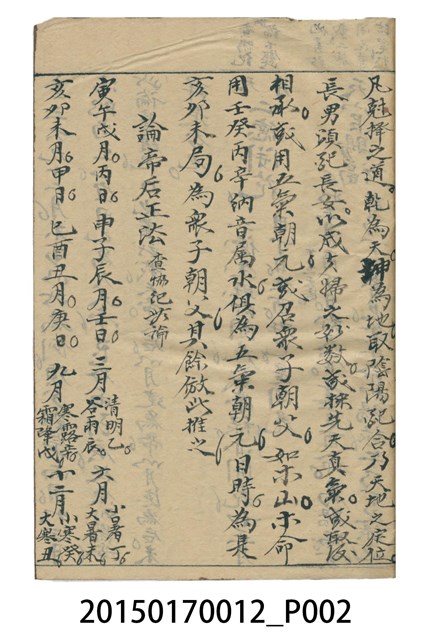 凡剋擇之道乾為天坤為地取陰陽配合乃天地之定位
長男須配長女以成夫婦之 數或 先天真氣或取
相承或用五氣朝元或召衆子朝父如木山木命
用壬癸丙辛納音属水俱為五氣朝元日時為是
亥卯未局為衆子朝父其餘倣此推之
論帝后正法
寅午戌月丙日申子辰月壬日三月清明乙谷雨辰六月小暑丁大暑未
亥卯未月甲日巳酉丑月庚日九月寒露辛霜降戌十二月小寒癸大寒丑
20150170012_P002